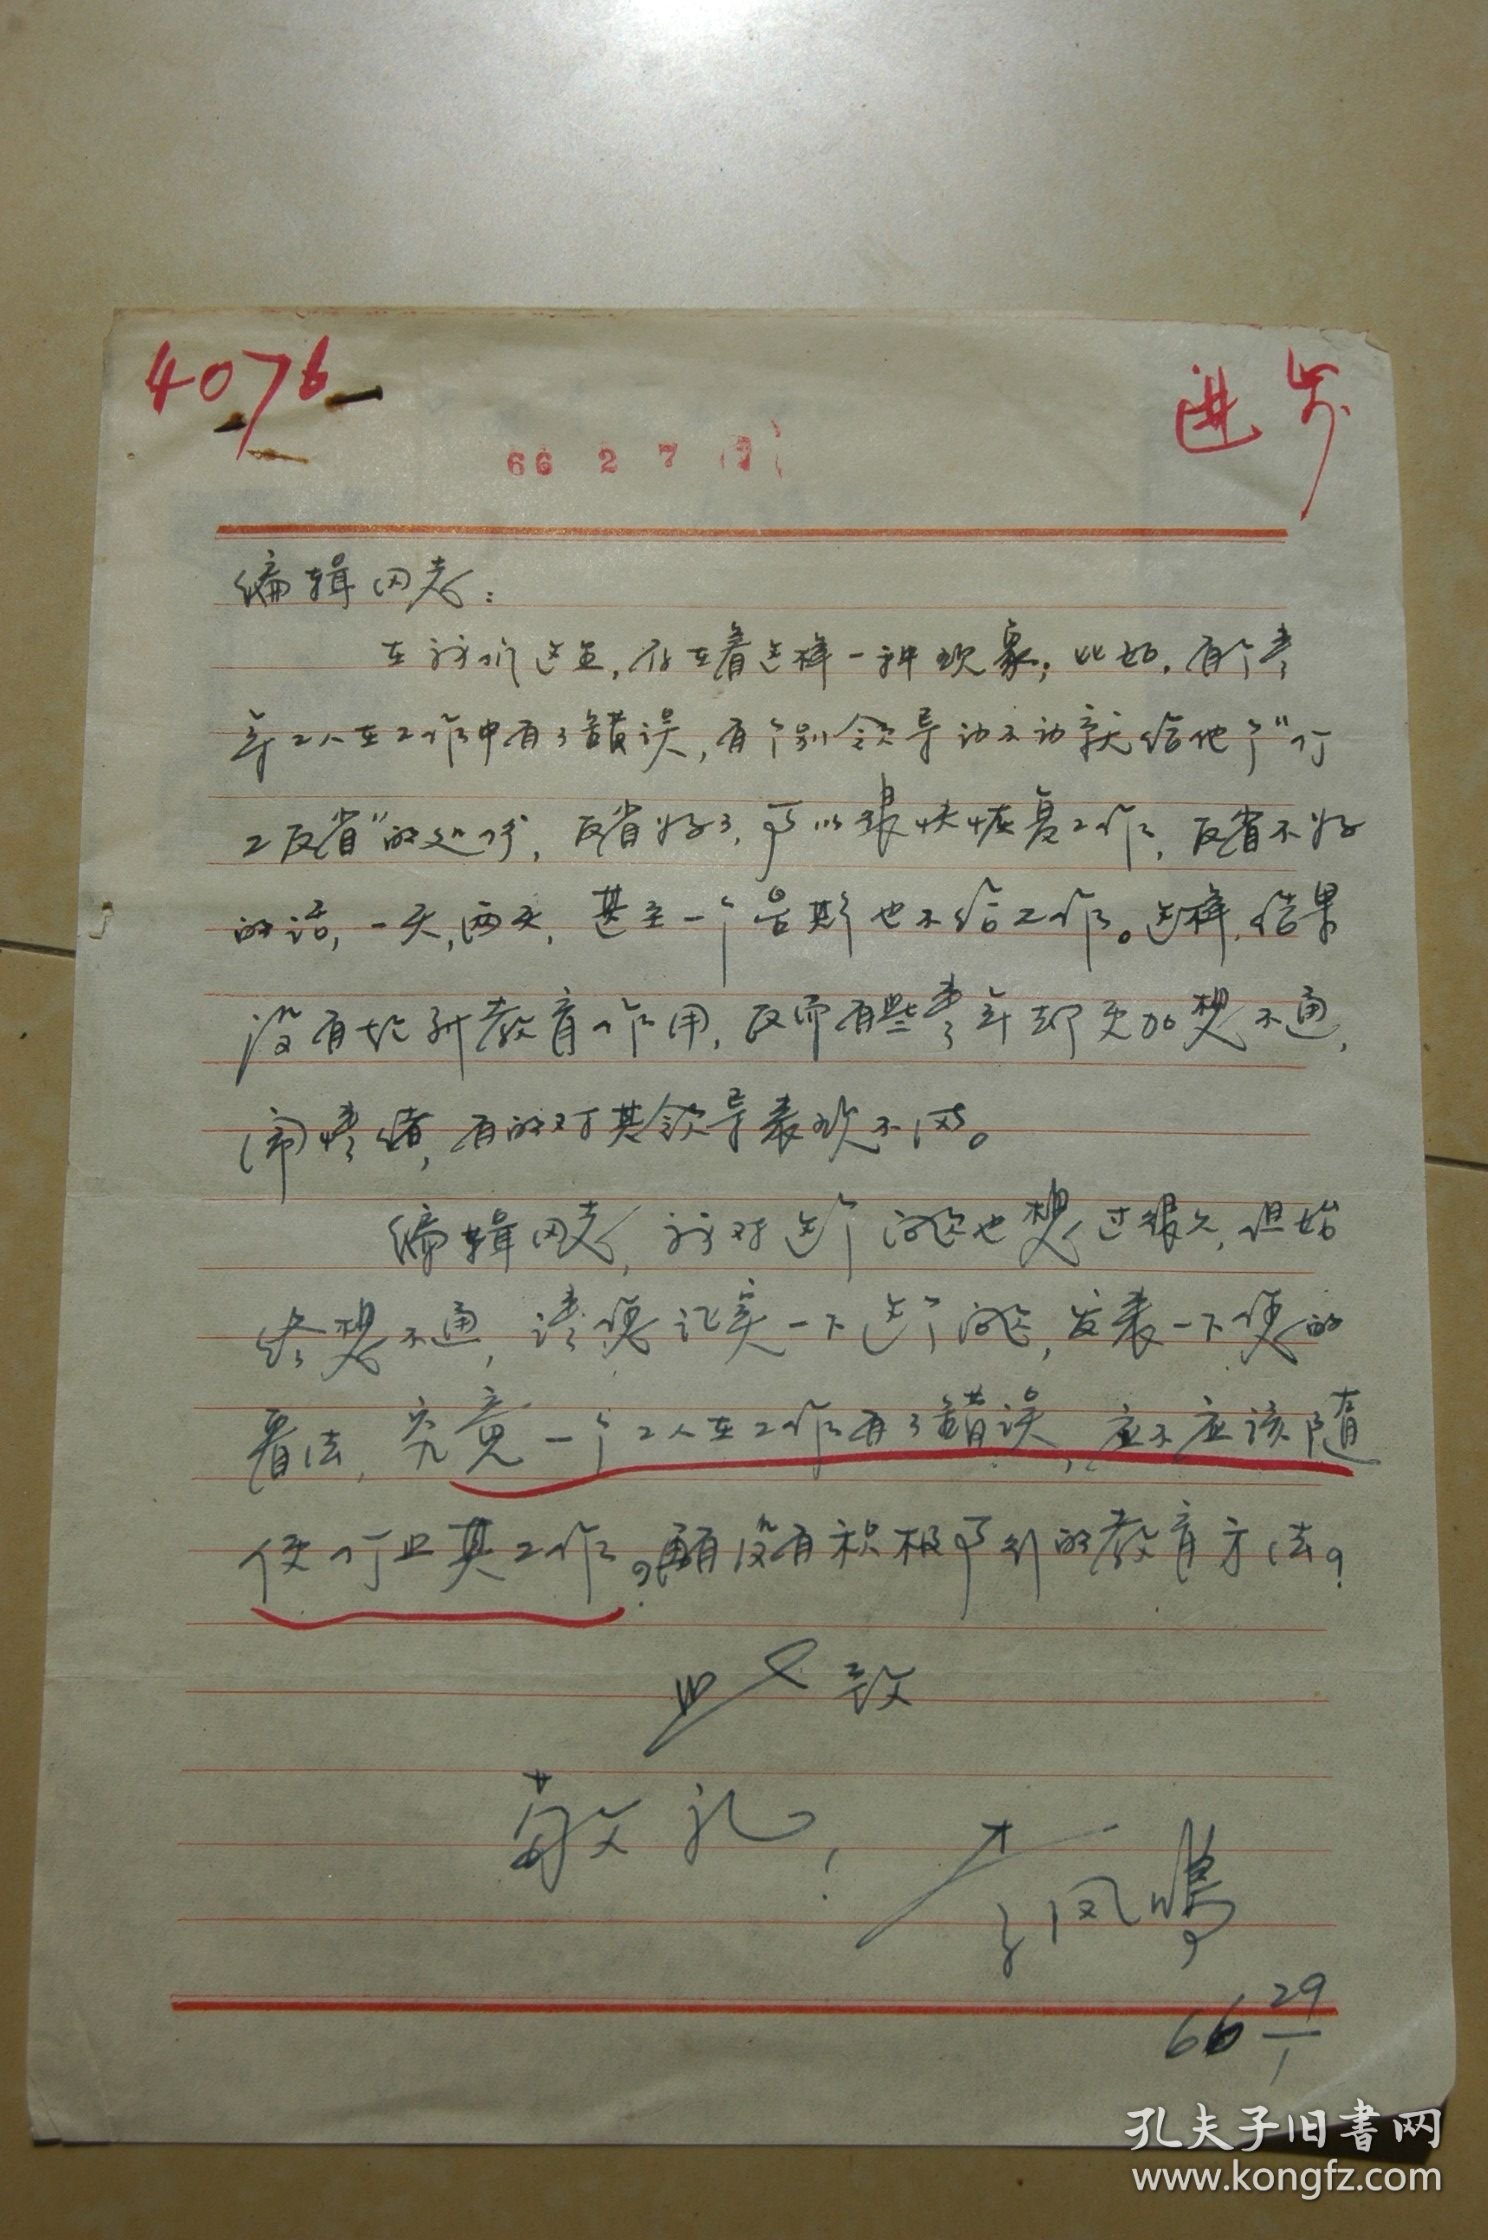 4076
进步
66 2 7
编辑同志：
在我们这里，存在着这样一种现象；比如，有个青
年工人在工作中有了错误，有个别领导动不动就给他个"停
工反省"的处分，反省好了，可以很快恢复工作，反省不好
的话，一天，两天，甚至一个星期也不给工作。这样，结果
没有起到教育作用，反而有些青年却更加想不通，
闹情绪，有的对其领导表现不满。
编辑同志，我对这个问题也想过很久，但始
终想不通，请您证实一下这个问题，发表一下您的
看法，究竟一个工人在工作有了错误，应不应该随
便停止其工作。再有没有积极可行的教育方法？
此致
敬礼！
李凤鸣
66 29/1
孔夫子旧书网
www.kongfz.com